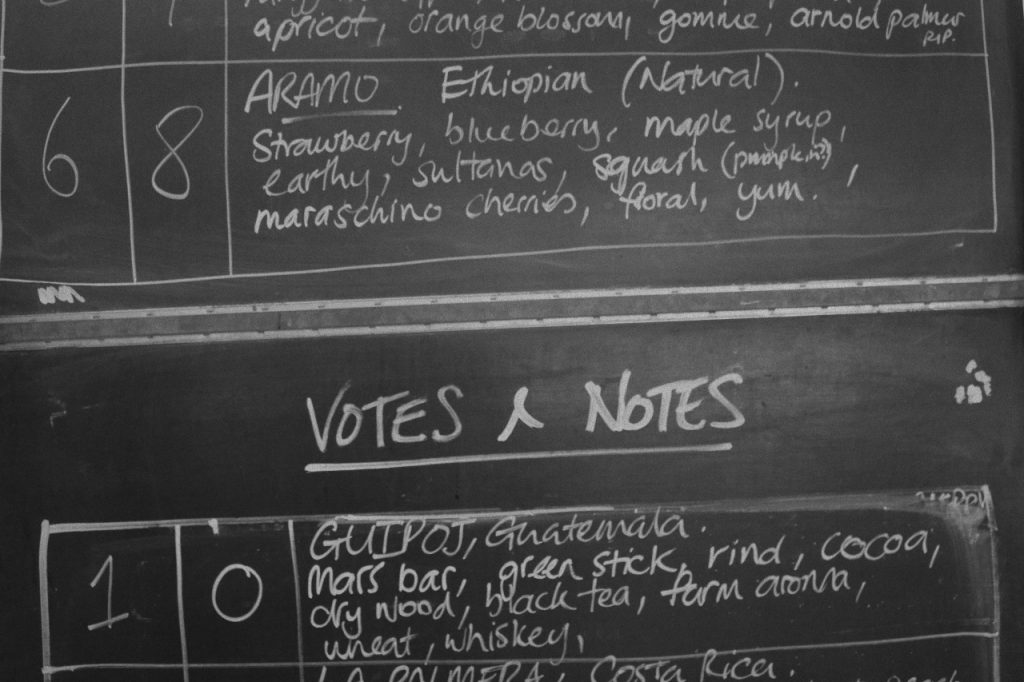 apricot, orange blossom, gomme, arnold palmer
R.I.P.
6 8 ARAMO. Ethiopian (Natural).
Strawberry, blueberry, maple syrup,
earthy, sultanas, squash (pumpkin?),
maraschino cherries, floral, yum.
VOTES & NOTES
1 0 GUIPOJ, Guatemala.
Mars bar, green stick, rind, cocoa,
dry wood, black tea, farm aroma,
wheat, whiskey,
LA PALMERA, Costa Rica.